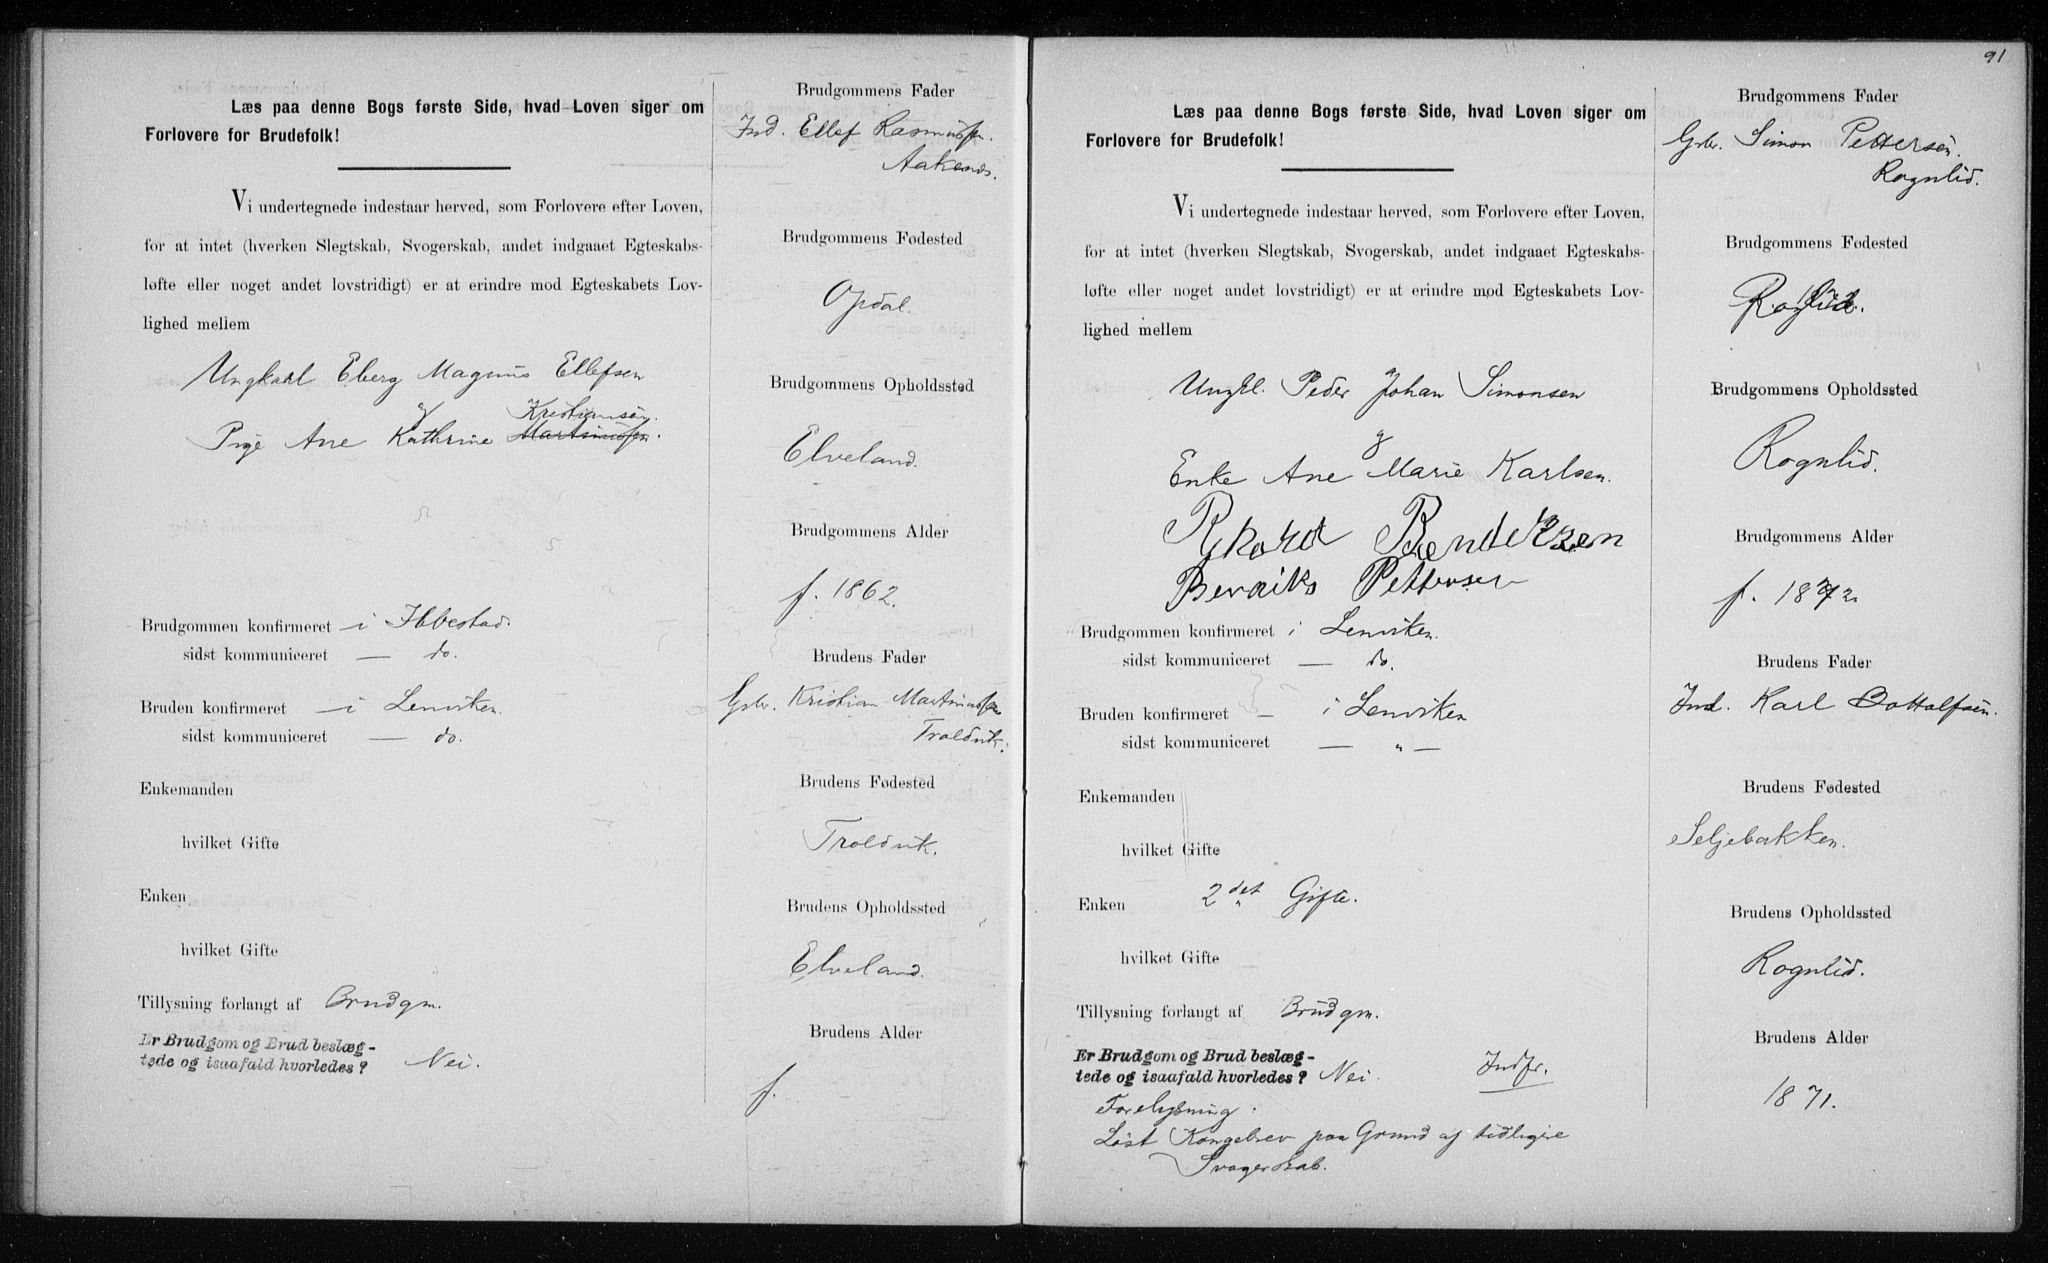 Læs paa denne Bogs første Side, hvad Loven siger om
Forlovere for Brudefolk!
Vi undertegnede indestaar herved, som Forlovere efter Loven,
for at intet (hverken Slegtskab, Svogerskab, andet indgaaet Egteskabs-
løfte eller noget andet lovstridigt) er at erindre mod Egteskabets Lov-
lighed mellem
Ungkarl Eberg Magnus Ellefsen
og
Kristiansen
Pige Ane Kathrine Martinussen.
Brudgommen konfirmeret – i Ibbestad.
sidst kommuniceret — do.
Bruden konfirmeret — i Lenviken.
sidst kommuniceret — do.
Enkemanden
hvilket Gifte
Enken
hvilket Gifte
Tillysning forlangt af Brudgm.
Er Brudgom og Brud beslæg-
tede og isaafald hvorledes? Nei.
Brudgommens Fader
Ind. Ellef Rasmussen.
Aakenes.
Brudgommens Fødested
Opdal.
Brudgommens Opholdssted
Elveland.
Brudgommens Alder
f. 1862.
Brudens Fader
Gbr. Kristian Martinussen
Troldvik.
Brudens Fødested
Troldvik.
Brudens Opholdssted
Elveland.
Brudens Alder
f.
91
Læs paa denne Bogs første Side, hvad Loven siger om
Forlovere for Brudefolk!
Vi undertegnede indestaar herved, som Forlovere efter Loven,
for at intet (hverken Slegtskab, Svogerskab, andet indgaaet Egteskabs-
løfte eller noget andet lovstridigt) er at erindre mod Egteskabets Lov-
lighed mellem
Ungkl. Peder Johan Simonsen
og
Enke Ane Marie Karlsen.
Rykard Bendekzen
Beraiks Pettersen
Brudgommen konfirmeret i Lenviken.
sidst kommuniceret — do.
Bruden konfirmeret – i Lenviken
sidst kommuniceret — " —
Enkemanden
hvilket Gifte
Enken 2det Gifte.
hvilket Gifte
Tillysning forlangt af Brudgm.
Er Brudgom og Brud beslæg-
tede og isaafald hvorledes? Nei. Indfr.
Forelysning.
Løst Kongebrev paa Grund af tidligere
Svogerskab.
Brudgommens Fader
Gbr. Simon Pettersen.
Rognlid.
Brudgommens Fødested
Rognlid.
Brudgommens Opholdssted
Rognlid.
Brudgommens Alder
f. 1872
Brudens Fader
Ind. Karl Bottolfsen.
Brudens Fødested
Seljebakken.
Brudens Opholdssted
Rognlid.
Brudens Alder
1871.